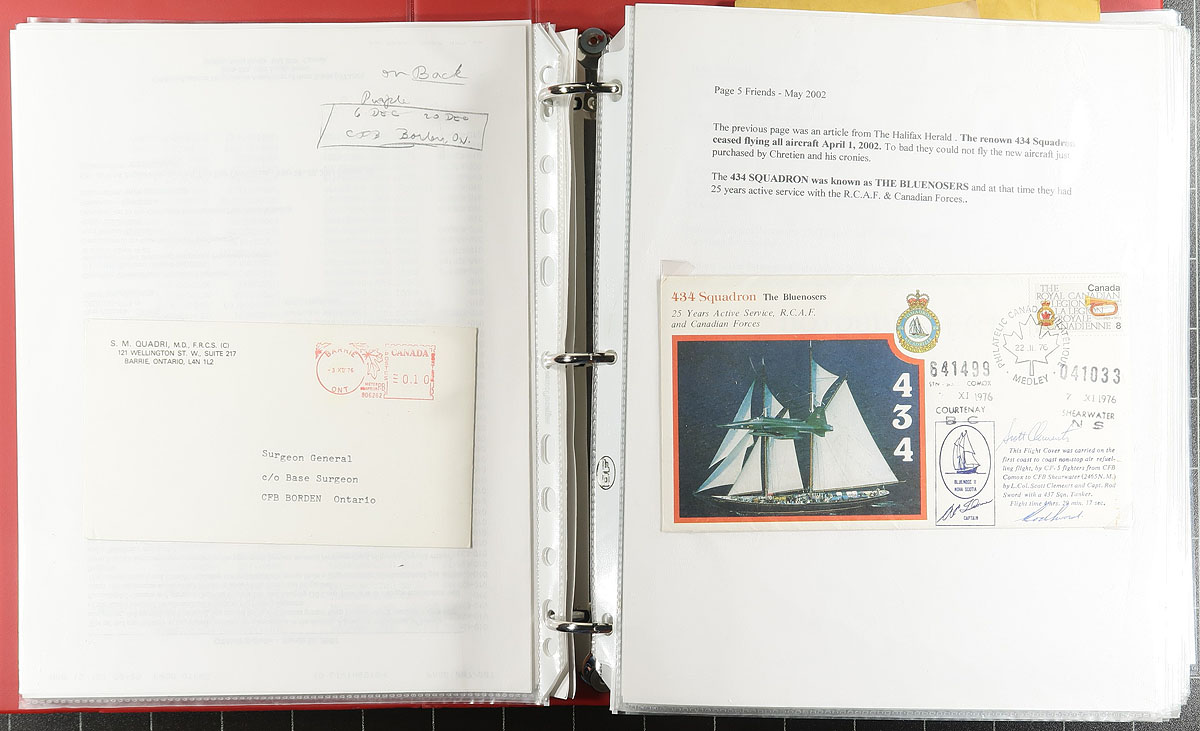 on Back
Purple
6 DEC 20 DEC
CFB Borden, On.
S. M. QUADRI, M.D., F.R.C.S. (C)
121 WELLINGTON ST. W., SUITE 217
BARRIE, ONTARIO, L4N 1L2
BARRIE
-3 XII 76
ONT
CANADA
POSTES
0.10
Surgeon General
c/o Base Surgeon
CFB BORDEN Ontario
Page 5 Friends - May 2002
The previous page was an article from The Halifax Herald . The renown 434 Squadron
ceased flying all aircraft April 1, 2002. To bad they could not fly the new aircraft just
purchased by Chretien and his cronies.
The 434 SQUADRON was known as THE BLUENOSERS and at that time they had
25 years active service with the R.C.A.F. & Canadian Forces..
434 Squadron The Bluenosers
25 Years Active Service, R.C.A.F.
and Canadian Forces
434
THE
ROYAL CANADIAN
LEGION
LA LEGION
ROYALE
CANADIENNE
Canada
8
22 II 76
MEDLEY
641499
COMOX
XI 1976
COURTENAY
B C
041033
XI 1976
SHEARWATER
N S
BLUENOSE II
NOVA SCOTIA
CAPTAIN
Scott Clements
This Flight Cover was carried on the
first coast to coast non-stop air refuel-
ling flight, by CF-5 fighters from CFB
Comox to CFB Shearwater (2465 N.M.)
by L.Col. Scott Clement and Capt. Rod
Sword with a 437 Sqn. Tanker.
Flight time hrs. min. 17 sec.
Rod Sword